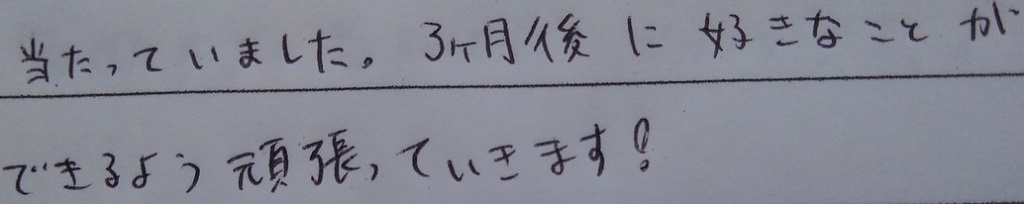 当たっていました。3ヶ月後に好きなことが
できるよう頑張っていきます!